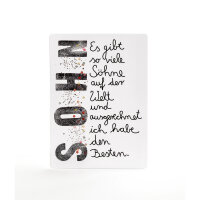 SOHN
Es gibt
so viele
Söhne
auf der
Welt
und
ausgerechnet
ich habe
den
Besten.